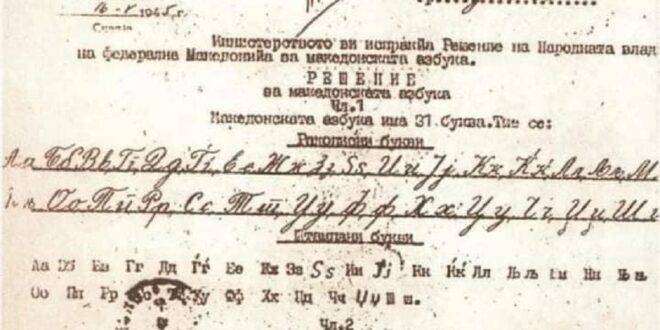 16-V 1945 г.
Скопје
Министерството ви испраќа Решение на Народната влад
на федерална Македонија за македонската азбука.
РЕШЕНИЕ
за македонската азбука
Чл.1
Македонската азбука има 31 буква. Тие се:
Ракописни букви
Аа Бб Вв Гг Дд Ѓѓ Ее Жж Зз Ѕѕ Ии Јј Кк Ќќ Лл Љљ М
Оо Пп Рр Сс Тт Уу Фф Хх Цц Чч Џџ Ш
Штампани букви
Аа Бб Вв Гг Дд Ѓѓ Ее Жж Зз Ѕѕ Ии Јј Кк Ќќ Лл Љљ Мм Нн Њњ
Оо Пп Рр Сс Тт Уу Фф Хх Цц Чч Џџ Шш.
Чл.2